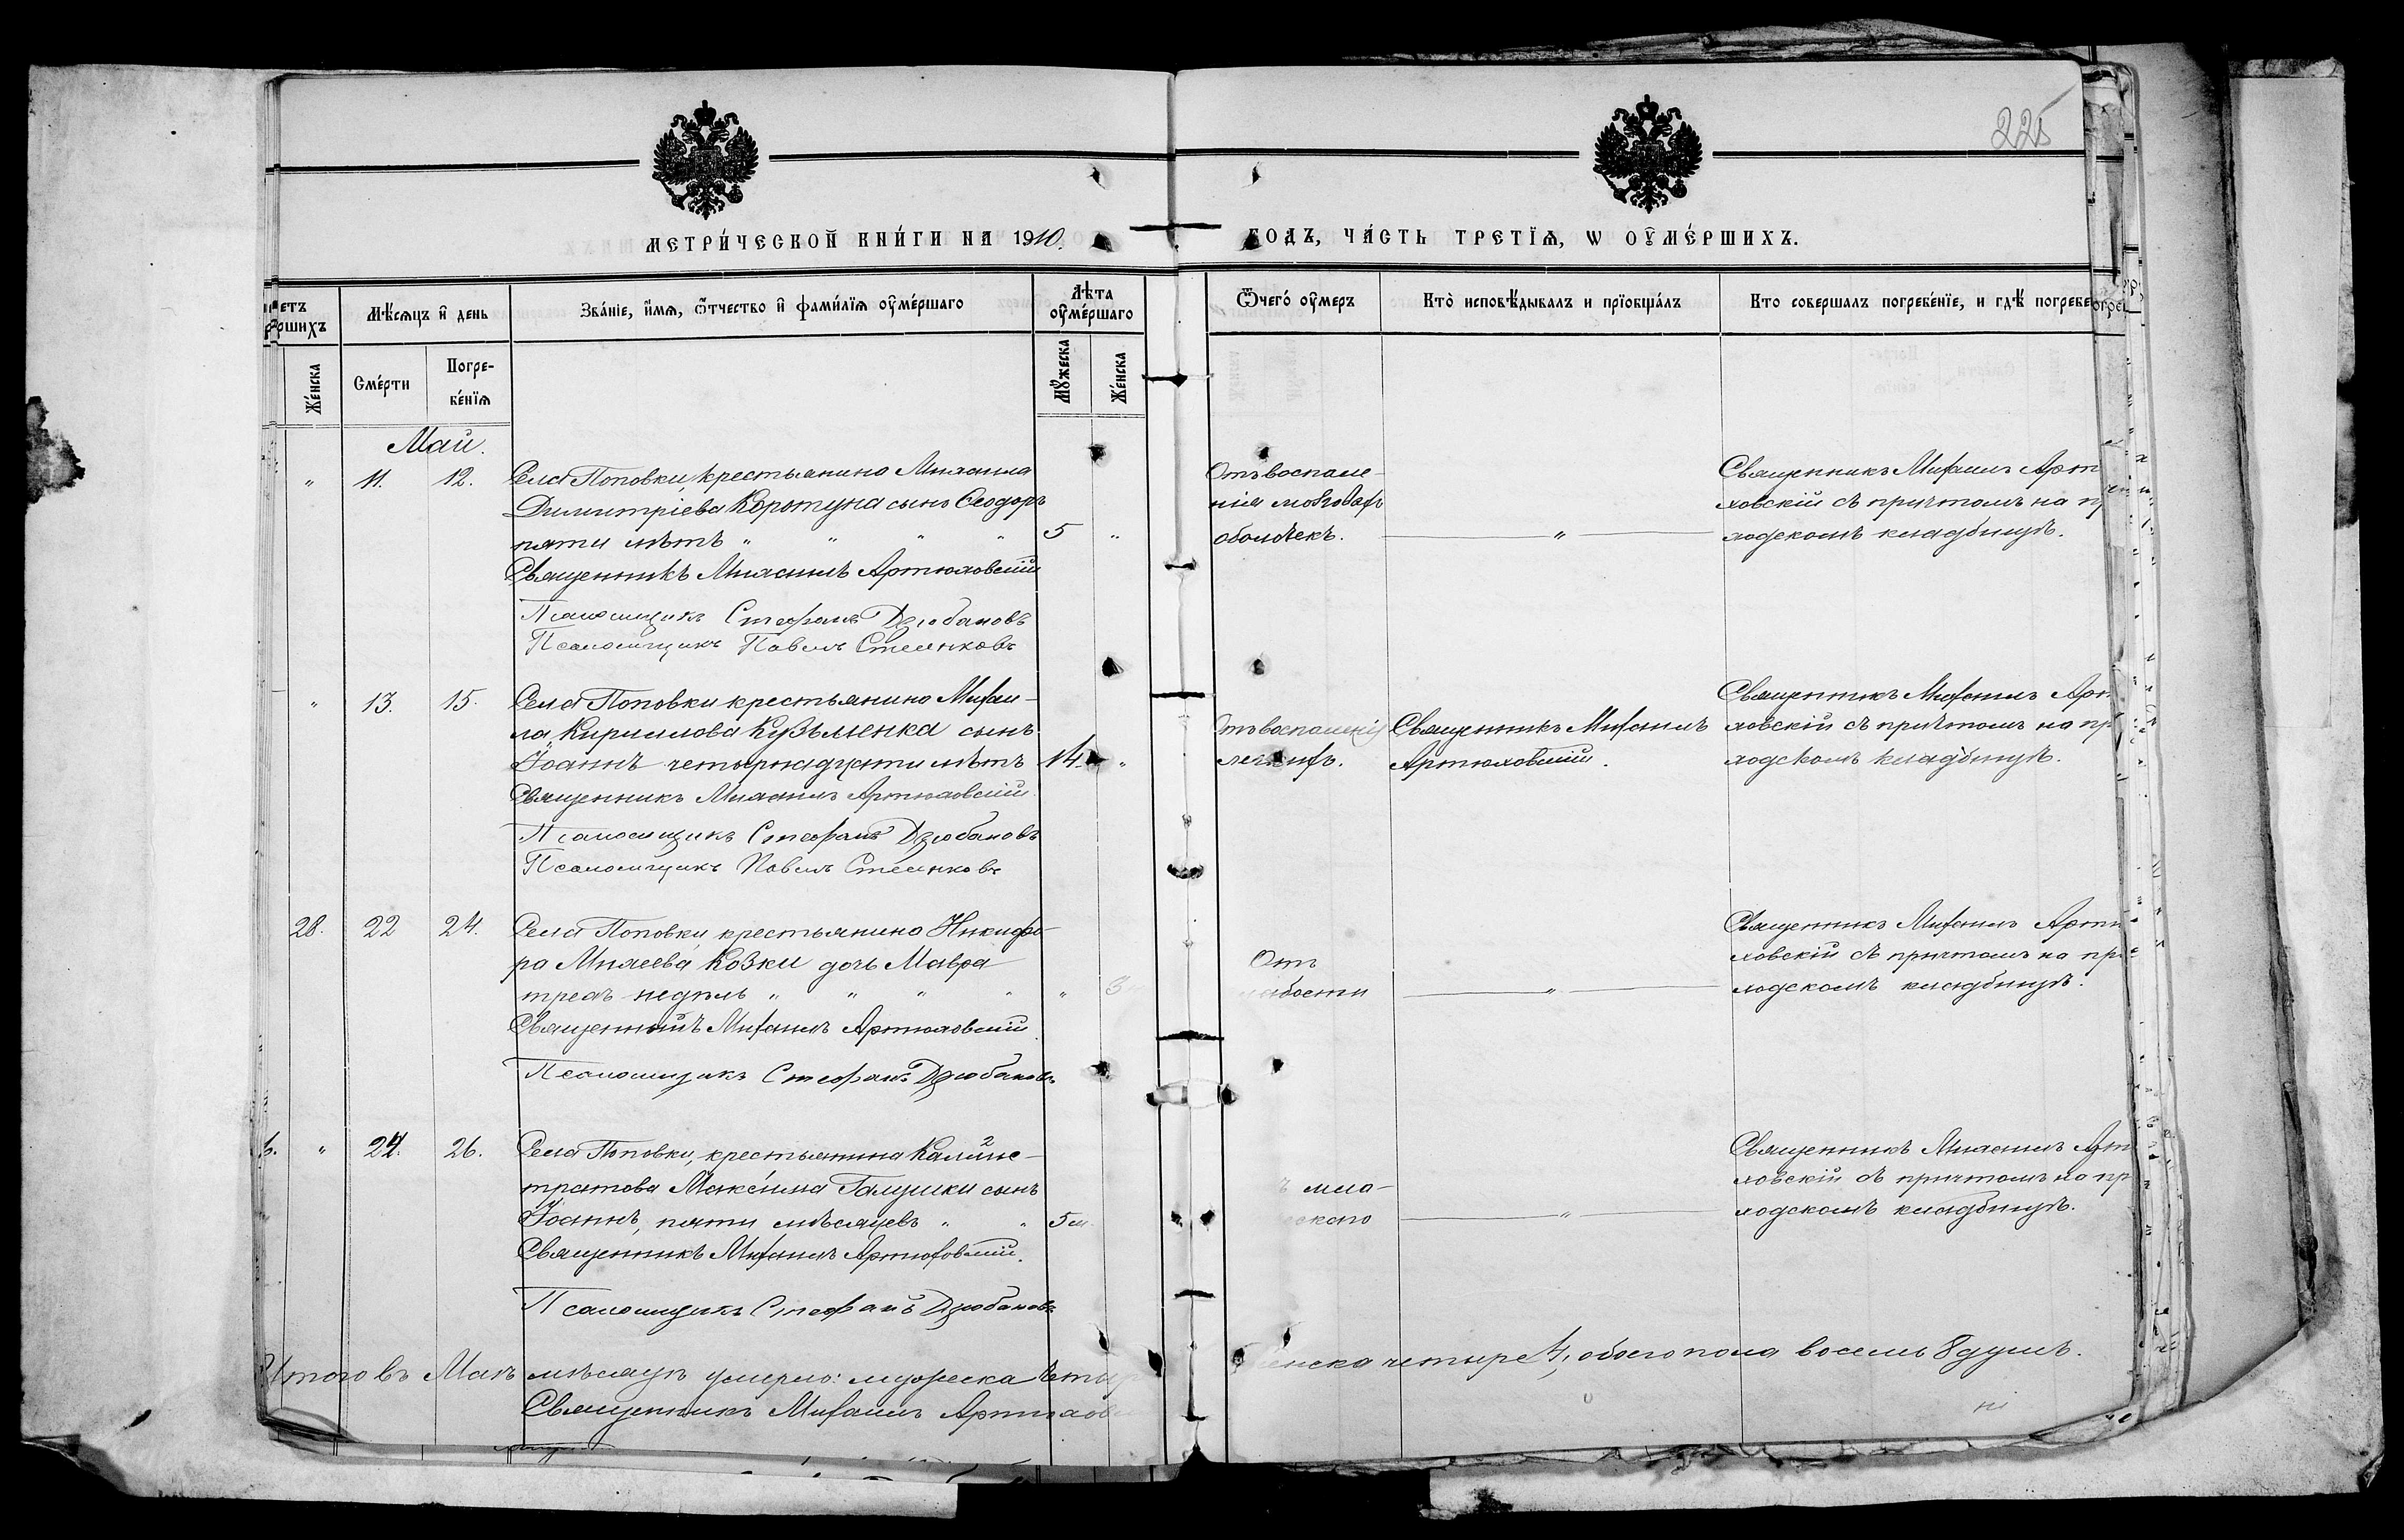 225
МЕТРИ́ЧЕСКОЙ КНИ́ГИ НА 1910.
ГОДЪ, ЧА́СТЬ ТРЕТІ́Я, Ѡ ОУМЕ́РШИХЪ.
Мѣ́сяцъ и день
Зва́нїе, и́мя, ѻ́тчество и фами́лїя оуме́ршаго
Лѣта
оуме́ршаго
Ѿчего́ оу́меръ
Кто̀ исповѣ́дывалъ и прїобща́лъ
Кто совершалъ погребе́нїе, и гдѣ погребе
Же́нска
Сме́рти
Погре-
бе́нїя
Мꙋ́жеска
Же́нска
Май.
" 11. 12. Села Поповки, крестьянина Михаила
Димитріева Коротуна сынъ Ѳеодоръ
пяти лѣтъ " " " " 5 "
Священникъ Михаилъ Артюховскій
Псаломщикъ Стефанъ Дзюбановъ
Псаломщикъ Павелъ Стеенковъ
Отъ воспале-
нія мозговыхъ
оболочекъ. "
Священникъ Михаилъ Арт
ховскій съ причтомъ на п
ходскомъ кладбищѣ.
" 13. 15. Села Поповки крестьянина Михаи-
ла Кириллова Кузьменка сынъ
Іоаннъ четырнадцати лѣтъ 14. "
Священникъ Михаилъ Артюховскій.
Псаломщикъ Стефанъ Дзюбановъ
Псаломщикъ Павелъ Стеенковъ
тъ воспаленія
легкихъ.
Священникъ Михаилъ
Артюховскій.
Священникъ Михаилъ Арт
ховскій съ причтомъ на пр
ходскомъ кладбищѣ.
28. 22 24. Села Поповки, крестьянина Никифо-
ра Михеева Козки дочь Мавра
трехъ недѣль " " " " " 3
Священникъ Михаилъ Артюховскій
Псаломщикъ Стефанъ Дзюбановъ
Отъ
слабости "
Священникъ Михаилъ Артю
ховскій съ причтомъ на пр
ходскомъ кладбищѣ.
" 24. 26. Села Поповки, крестьянина Каллис-
тратова Максима Галушки сынъ
Іоаннъ, пяти мѣсяцевъ " " 5 м.
Священникъ Михаилъ Артюховскій.
Псаломщикъ Стефанъ Дзюбановъ
"
Священникъ Михаилъ Арт
ховскій съ причтомъ на пр
ходскомъ кладбищѣ.
Итого въ Маѣ мѣсяцѣ умерло: мужеска четыр
енска четыре 4, обоего пола восемь 8 душъ.
Священникъ Михаилъ Артюхов